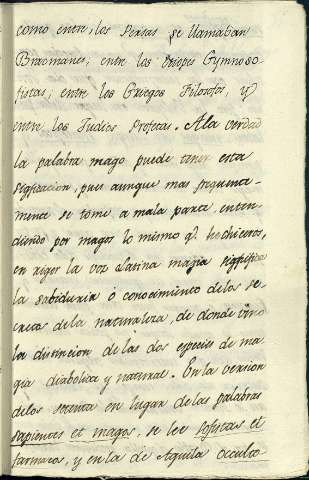 como entre los Persas se llamaban
Bracmanes; entre los Etiopes Gymnoso-
fistas; entre los Griegos Filosofos, y
entre los Judios Profetas. A la verdad
la palabra mago puede tener esta
significacion, pues aunque mas frequente-
mente se tome a mala parte, enten-
diendo por magos lo mismo q.e hechiceros,
en rigor la voz Latina magia significa
la sabiduria ó conocimiento de los se-
cretos de la naturaleza, de donde vino
la distincion de las dos especies de ma-
gia diabolica y natural. En la version
de los setenta en lugar de las palabras
sapientes et magos, se lee sofistas et
farmacos, y en la de Aquila occulto-